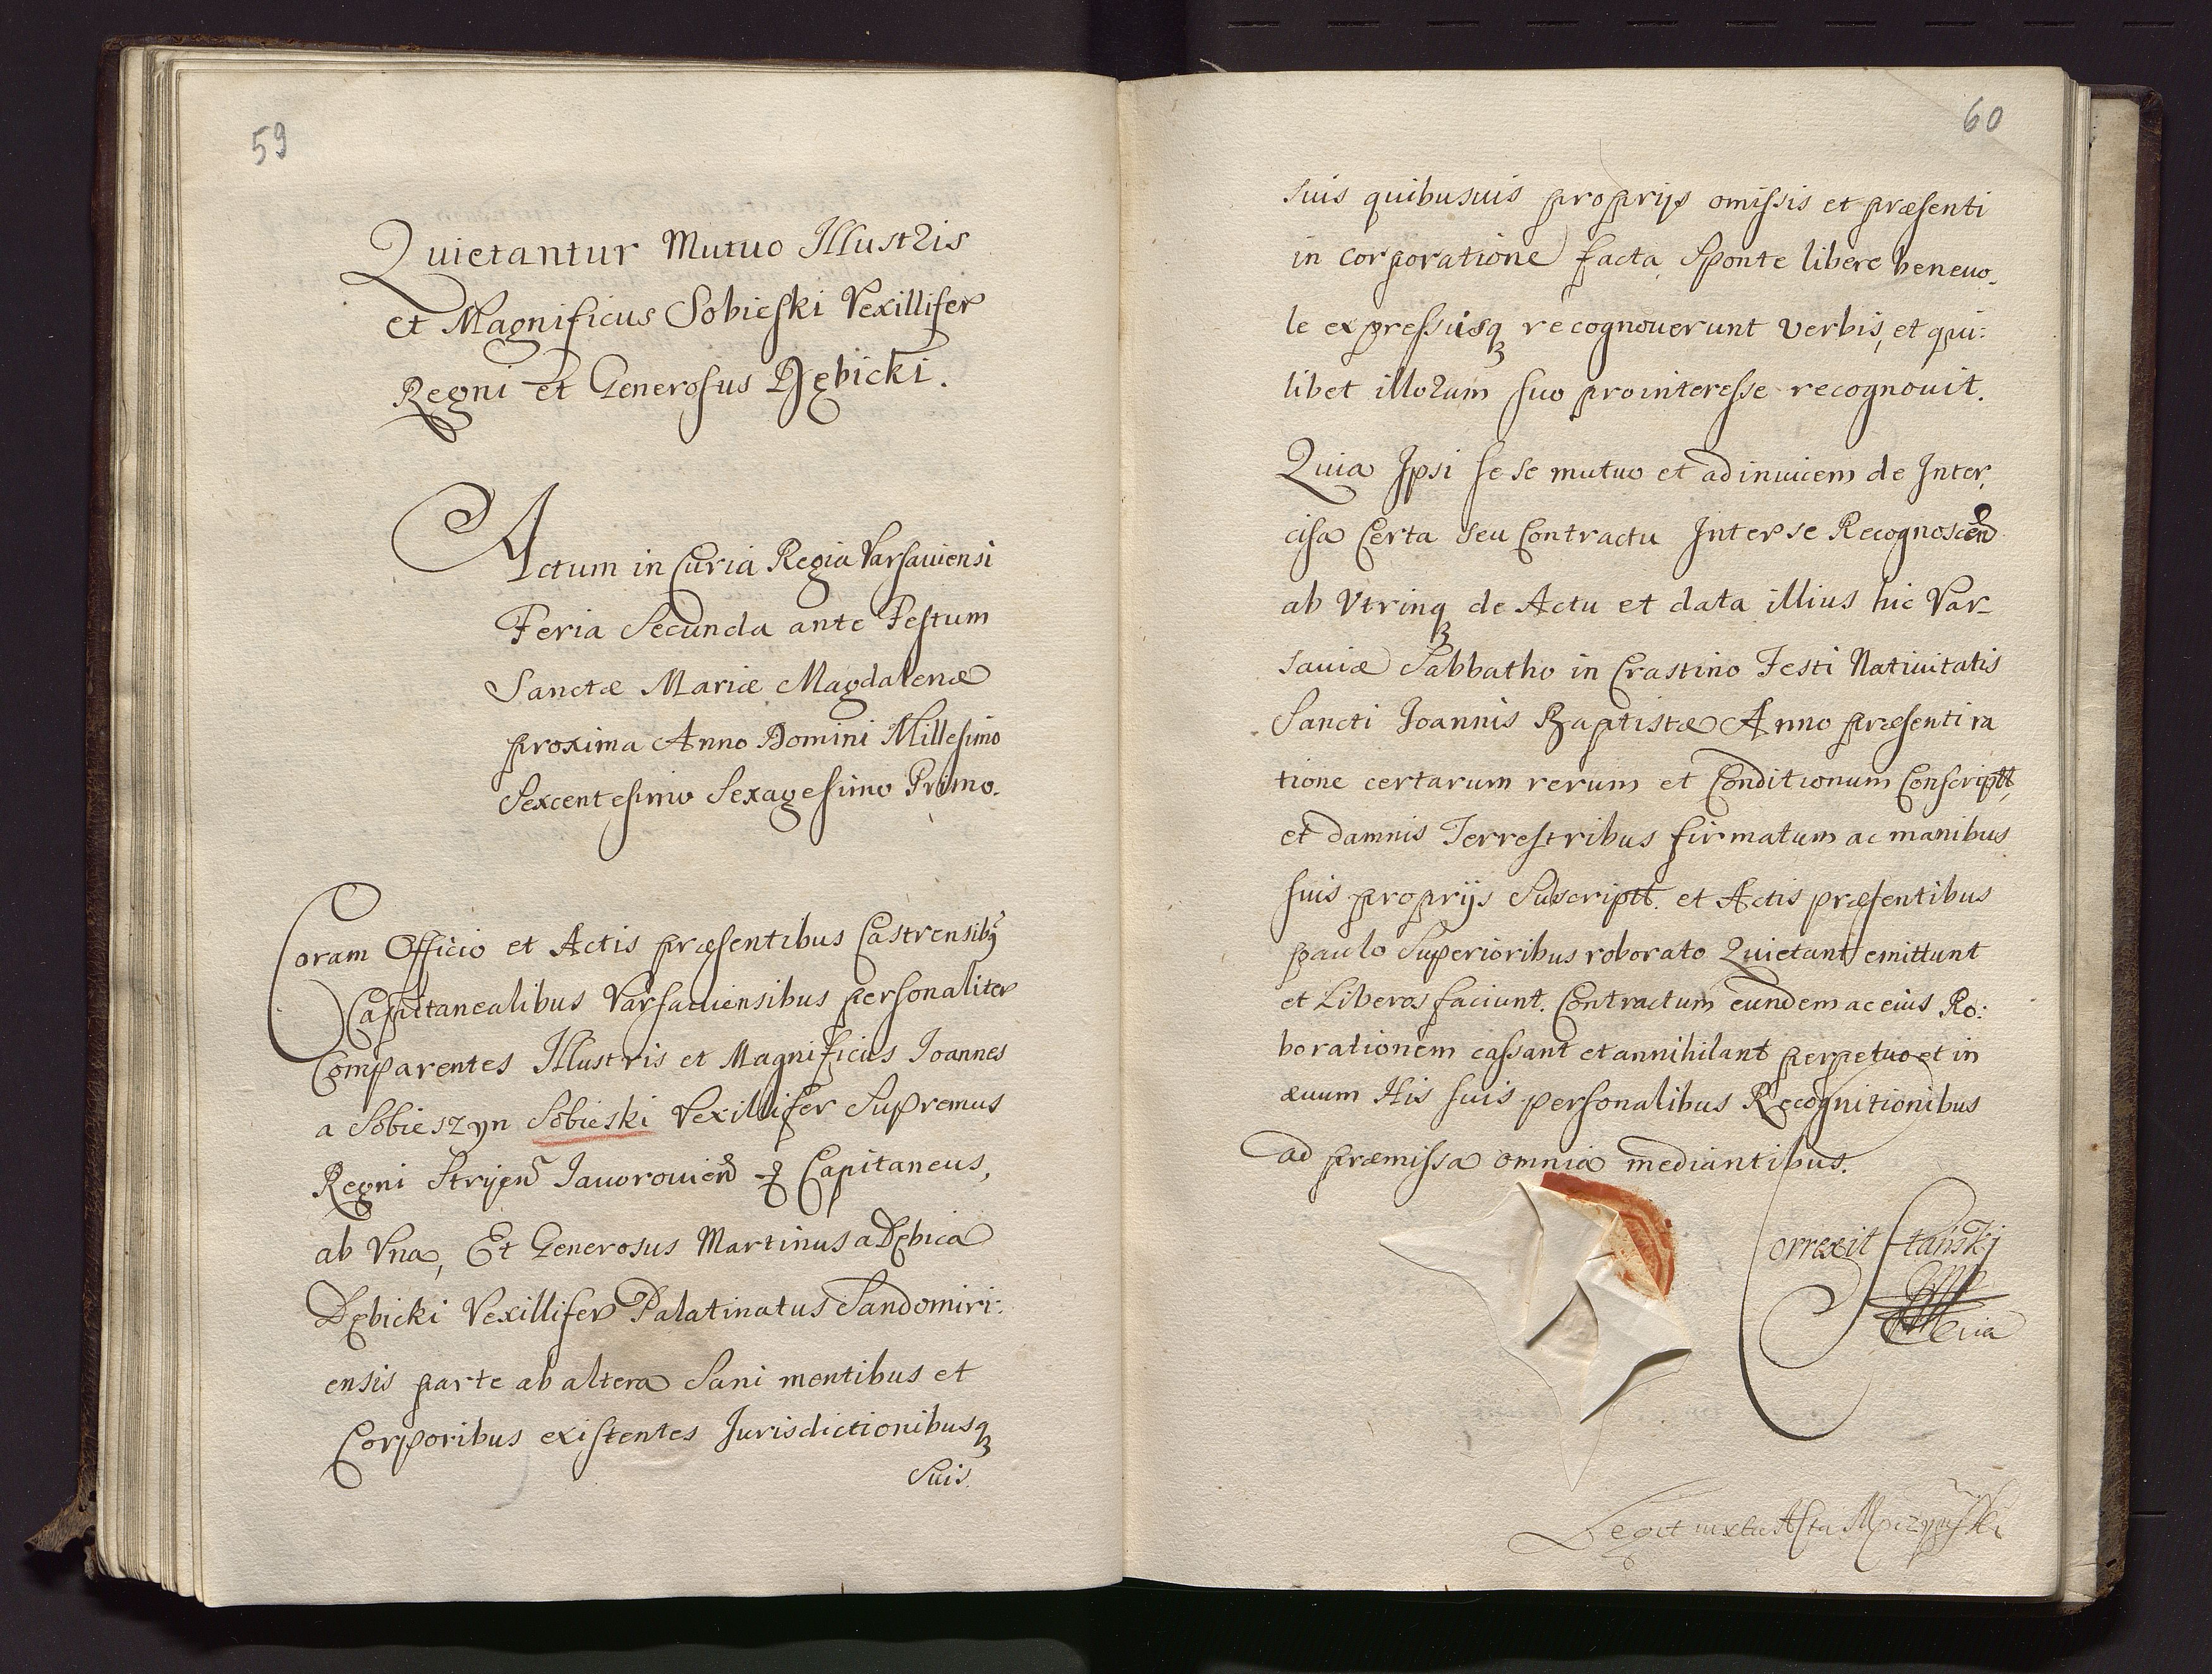 59
Quietantur Mutuo Illustris
et Magnificus Sobieski Vexillifer
Regni et Generosus Dębicki.
Actum in Curia Regia Varsauiensi
Feria Secunda ante Festum
Sanctæ Mariæ Magdalenæ
proxima Anno Domini Millesimo
Sexcentesimo Sexagesimo Primo.
Coram Officio et Actis præsentibus Castrensibq
Capitanealibus Varsauiensibus personaliter
Comparentes Illustris et Magnificus Ioannes
a Sobieszyn Sobieski Vexillifer Supremus
Regni Stryen Iaworouien Capitaneus,
ab Vna, Et Generosus Martinus a Dębica
Dębicki Vexillifer Palatinatus Sandomiri:
ensis parte ab altera Sani mentibus et
Corporibus existentes Jurisdictionibusq
Suis.
60
suis quibusuis proprijs omissis et præsenti
in corporatione facta Sponte libere beneuo-
le expressisq recognouerunt verbis, et qui:
libet illorum suo prointeresse recognouit.
Quia Ipsi se se mutuo et adinuicem de Inter,
cisa Certa seu Contractu Inter se Recognoscen
ab Vtrinq de Actu et data illius hic Var-
sauiæ Sabbatho in Crastino Festi Natiuitatis
Sancti Ioannis Baptistæ Anno præsenti ra
tione certarum rerum et Conditionum Conscriptt,
et damnis Terrestribus firmatum ac manibus
suis proprijs Subscriptt. et Actis præsentibus
paulo Superioribus roborato Quietant emittunt
et Liberos faciunt. Contractum eundem ac eius Ro:
borationem cassant et annihilant perpetuo et in
æuum His suis personalibus Recognitionibus
ad præmissa omnia mediantibus.
Correxit Stanskj
Legit iuxta Acta